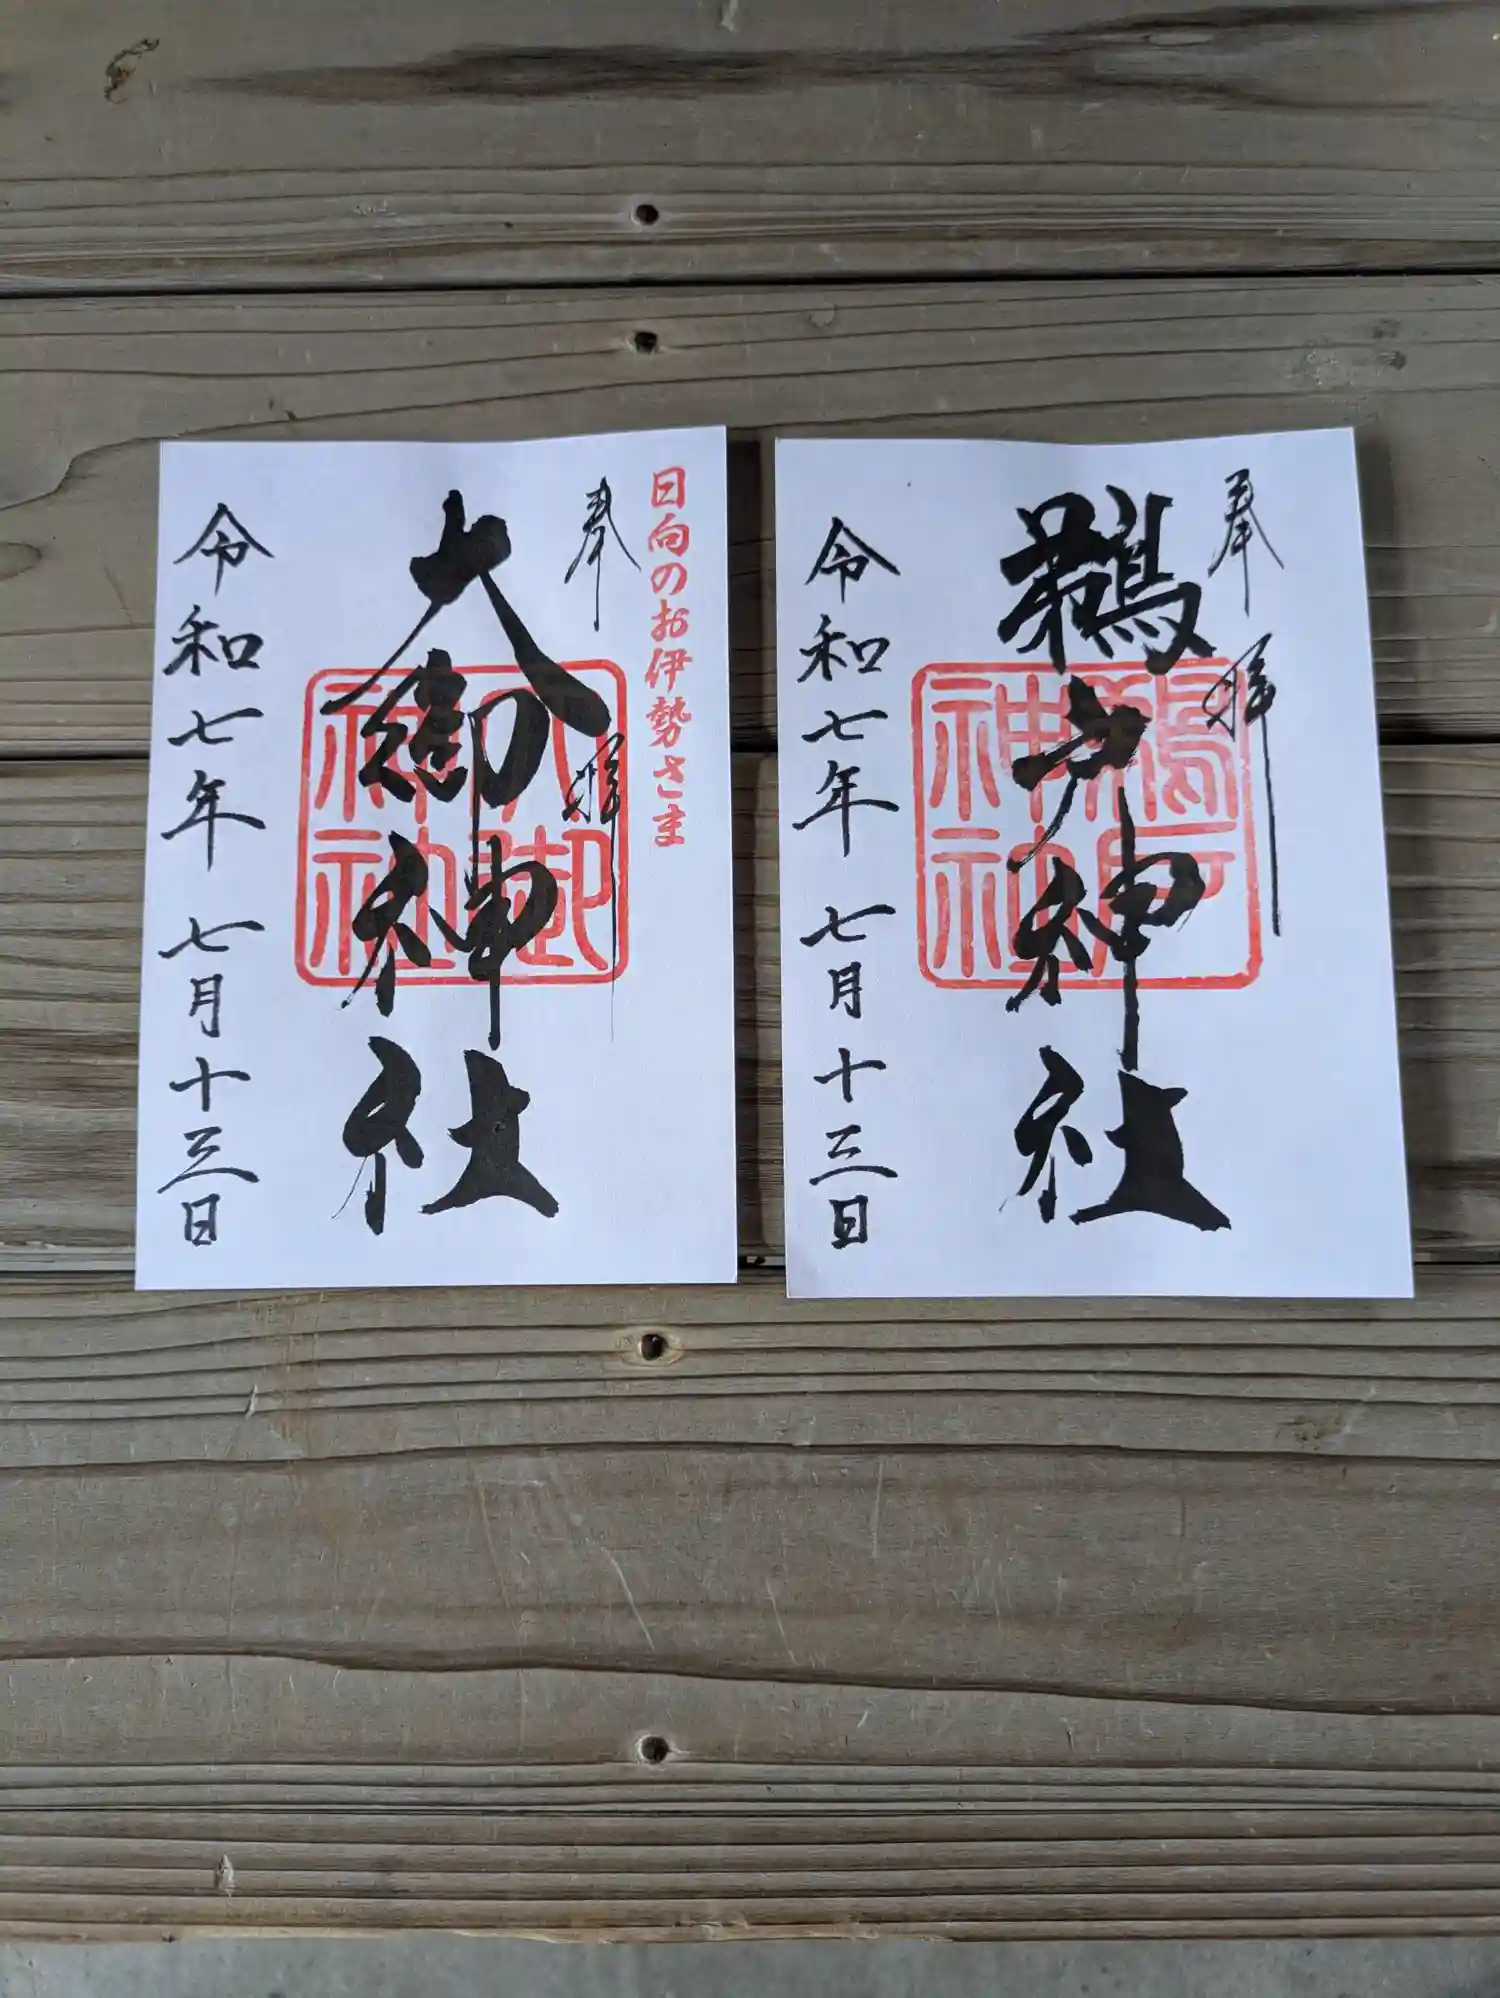 日向のお伊勢さま
奉拝
大御神社
大御神社
令和七年 七月十三日
奉拝
鵜戸神社
鵜戸神社
令和七年 七月十三日